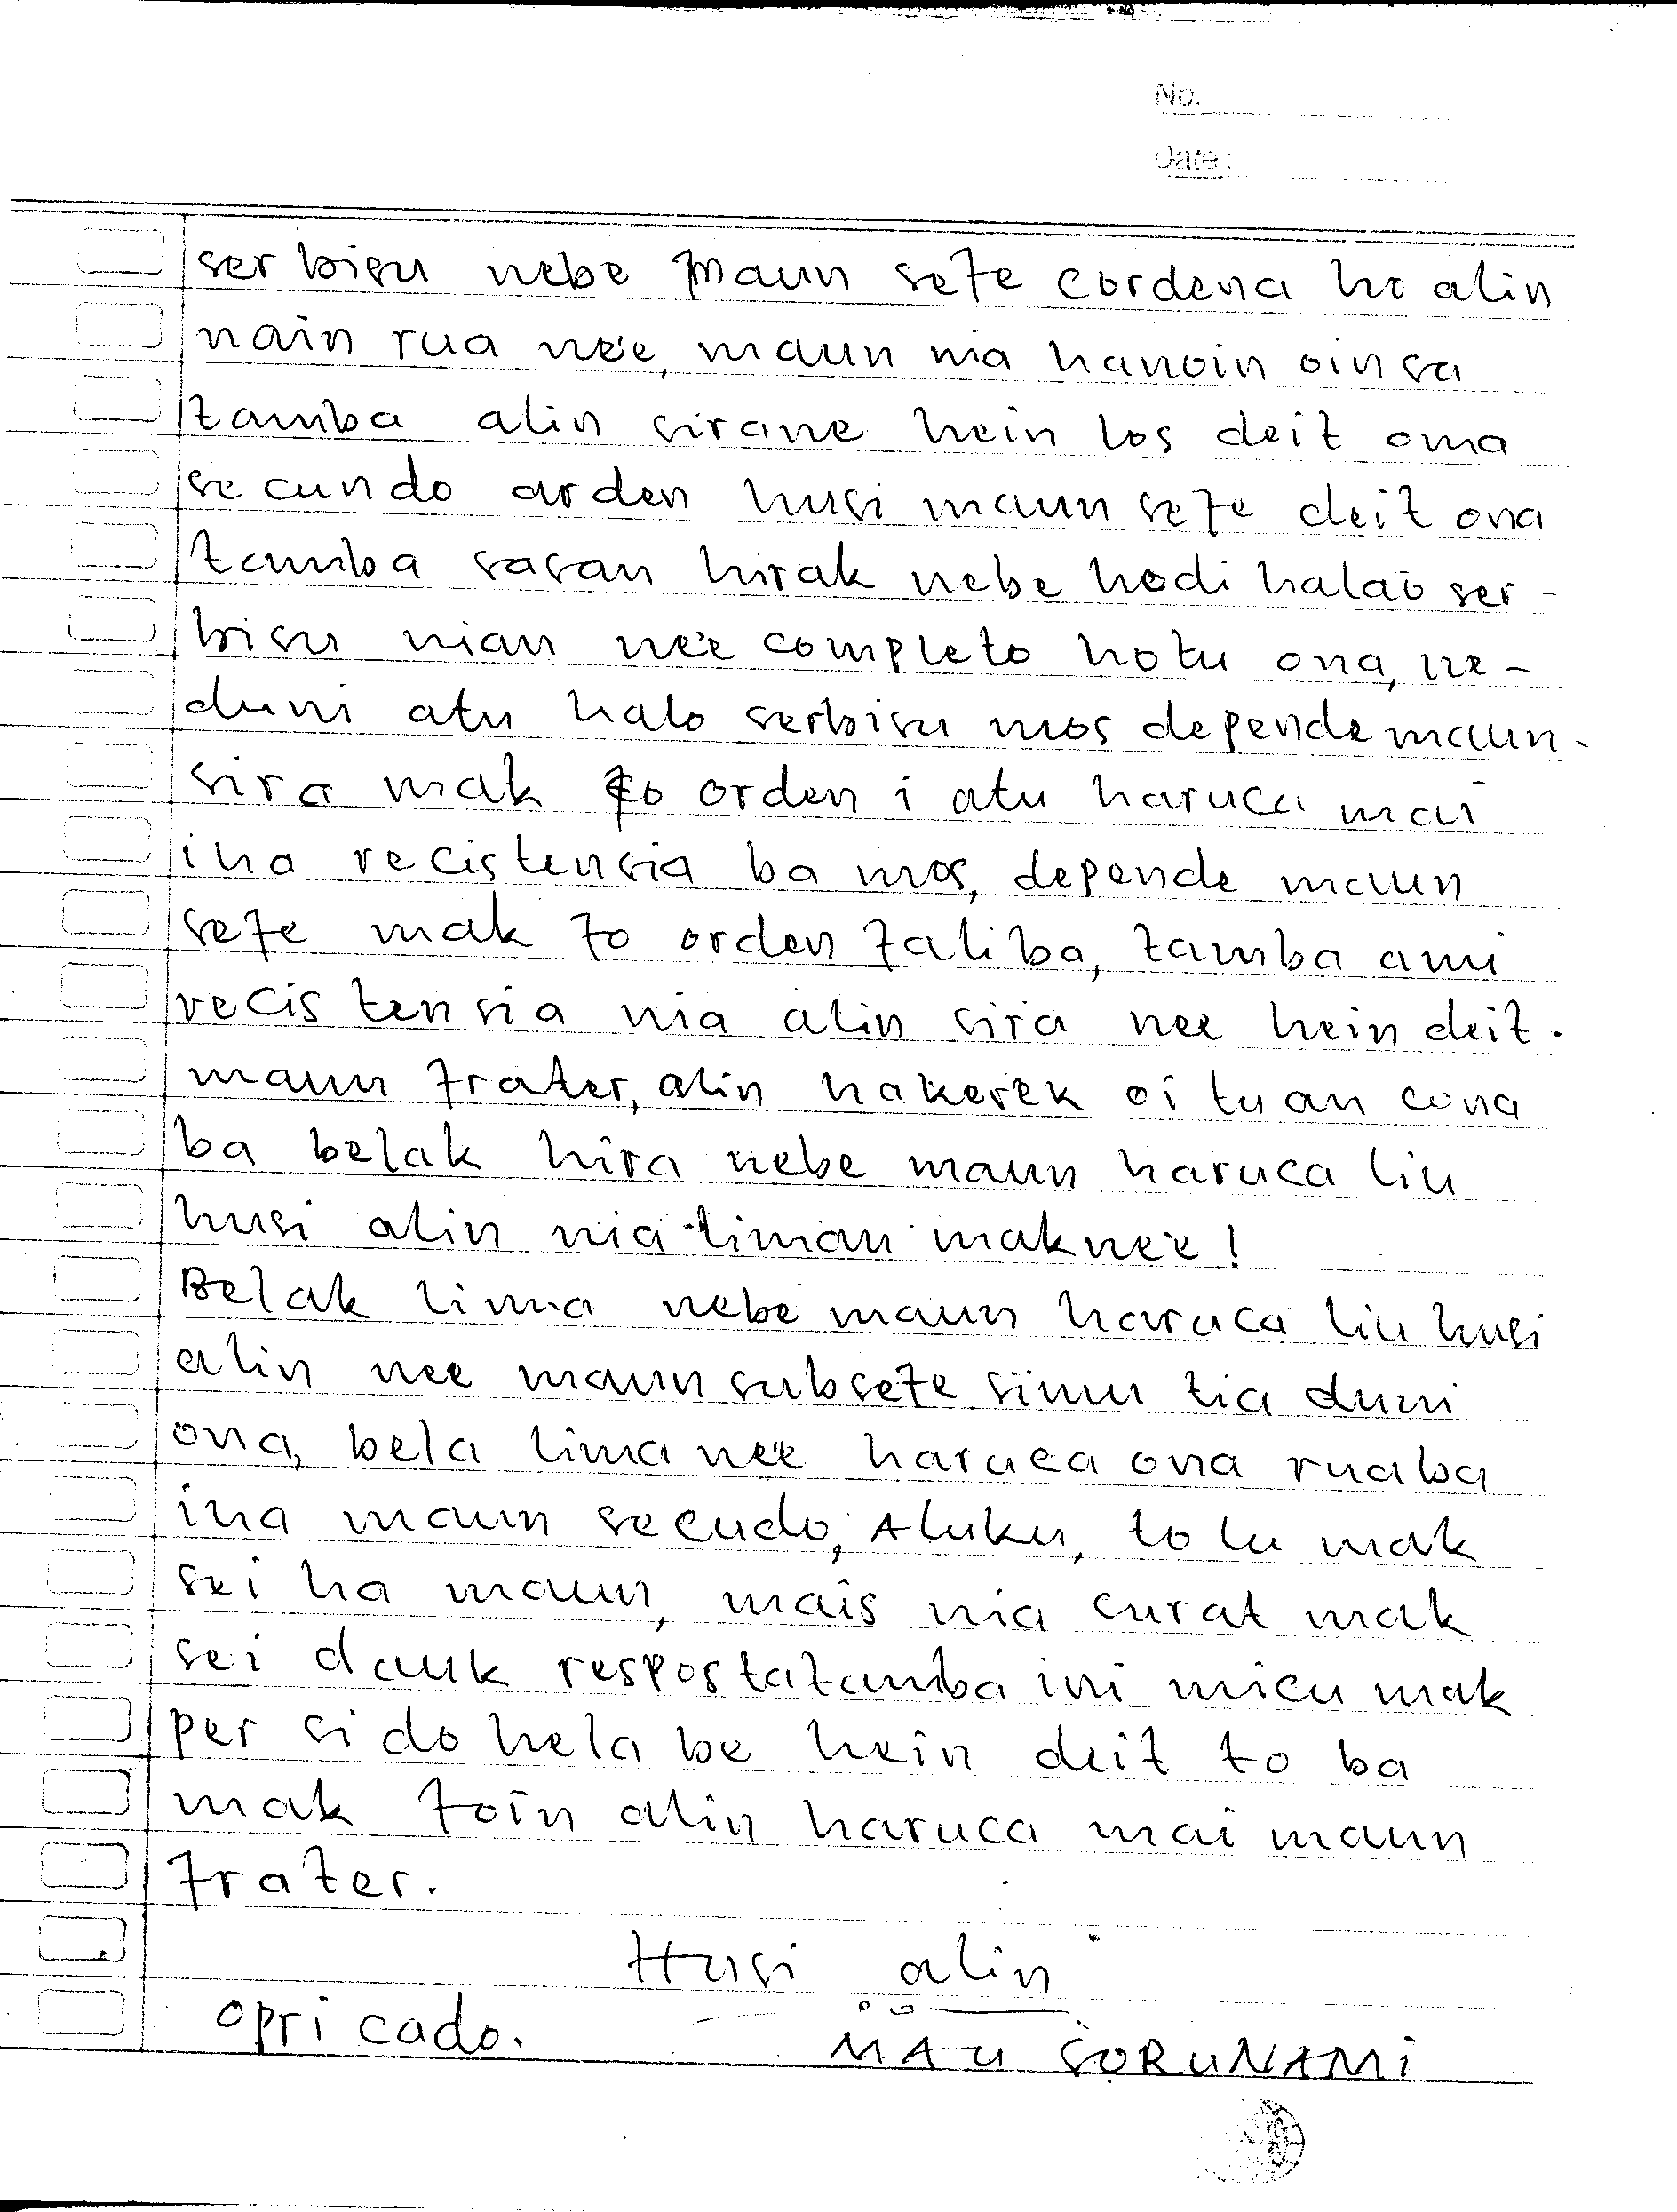 No.
Date:
serbisu nebe maun sefe cordena ho alin
nain rua neʼe, maun nia hanoin oin sa
tamba alin sirane hein los deit ona
secundo arden husi maun sefe deit ona
tamba sasan hirak nebe hodi halaò ser-
bisu nian neʼe completo hotu ona, ne-
duni atu halo serbisu mos depende maun-
sira mak fo orden i atu haruca mai
iha recistensia ba mos, depende maun
sefe mak fo orden faliba, tamba ami
recistensia nia alin sira nee hein deit.
maun frater, alin hakerek oi tuan cona
ba belak hira nebe maun haruca liu
husi alin nia liman mak neʼe!
Belak lima nebe maun haruca liu husi
alin nee maun subsefe simu tia duni
ona, bela lima neʼe haruca ona ruaba
iha maun secudo, Aluku, tolu mak
sei ha maun, mais nia curat mak
sei dauk respostatamba ini micu mak
per si do hela be hein deit to ba
mak foin alin haruca mai maun
frater.
Husi alin
opri cado.
MAU SORUNAMI